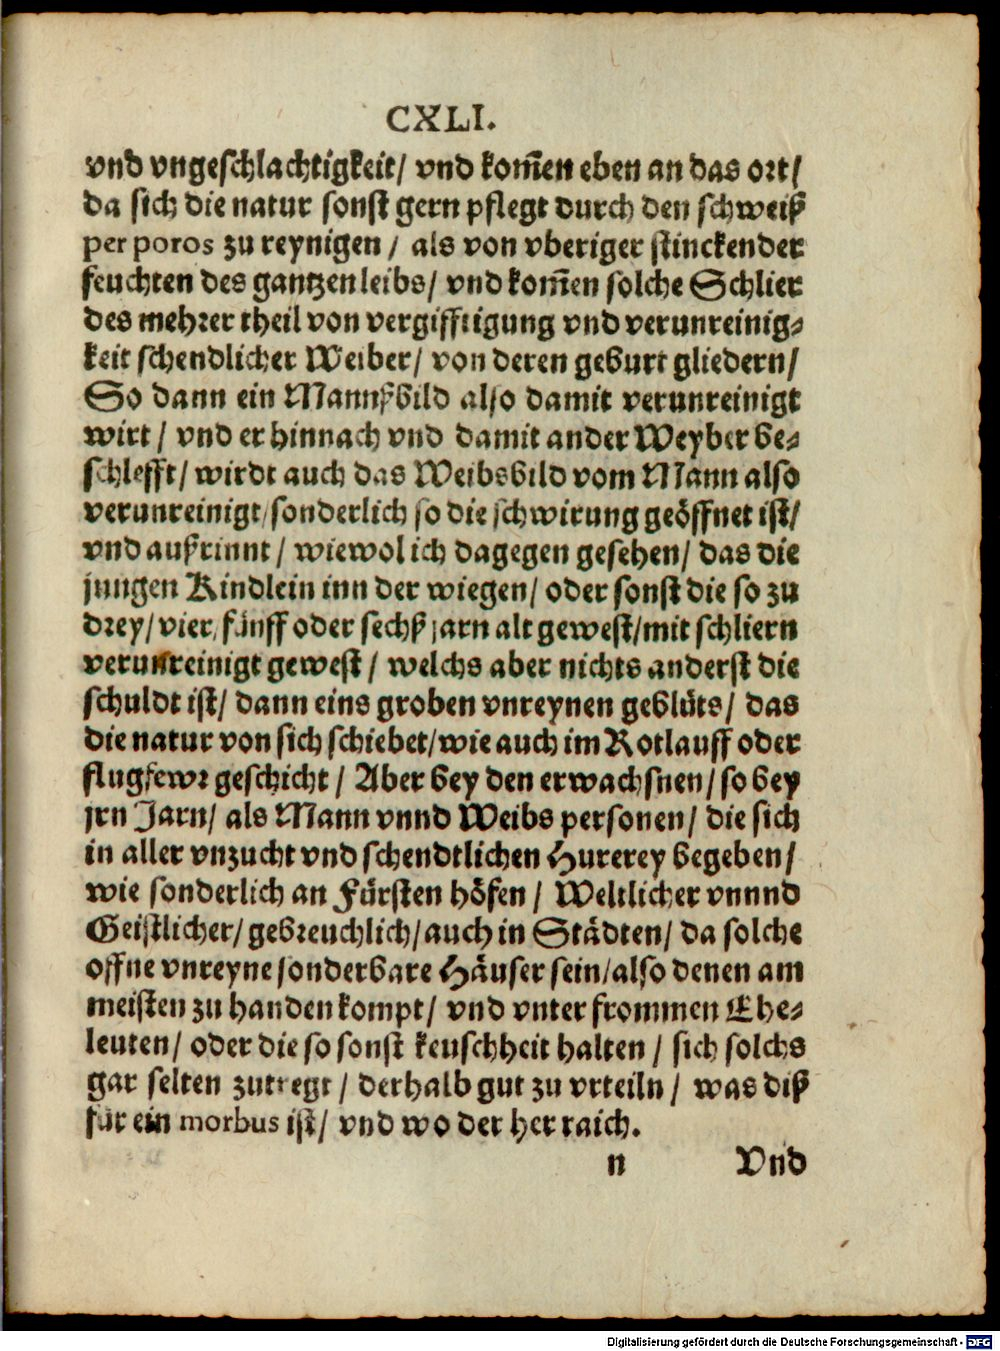 CXLI.
vnd vngeschlachtigkeit/ vnd kom̄en eben an das ort/
da sich die natur sonst gern pflegt durch den schweiß
per poros zu reynigen / als von vberiger stinckender
feuchten des gantzen leibs/ vnd kom̄en solche Schlier
des mehrer theil von vergifftigung vnd verunreinig-
keit schendlicher Weiber/ von deren geburt gliedern/
So dann ein Mannßbild also damit verunreinigt
wirt / vnd er hinnach vnd damit ander Weyber be-
schlefft/ wirdt auch das Weibsbild vom Mann also
verunreinigt/ sonderlich so die schwirung geöffnet ist/
vnd außrinnt / wiewol ich dagegen gesehen/ das die
jungen Kindlein inn der wiegen/ oder sonst die so zu
drey/ vier/ fünff oder sechß jarn alt gewest/ mit schliern
verunreinigt gewest / welchs aber nichts anderst die
schuldt ist/ dann eins groben vnreynen geblüts/ das
die natur von sich schiebet/ wie auch im Rotlauff oder
flugfewr geschicht / Aber bey den erwachsnen/ so bey
jrn Jarn/ als Mann vnnd Weibs personen/ die sich
in aller vnzucht vnd schendtlichen Hurerey begeben/
wie sonderlich an Fürsten höfen / Weltlicher vnnnd
Geistlicher/ gebreuchlich/ auch in Städten/ da solche
offne vnreyne sonderbare Häuser sein/ also denen am
meisten zu handen kompt/ vnd vnter frommen Ehe-
leuten/ oder die so sonst keuschheit halten / sich solchs
gar selten zutregt / derhalb gut zu vrteiln / was diß
für ein morbus ist/ vnd wo der her raich.
n Vnd
Digitalisierung gefördert durch die Deutsche Forschungsgemeinschaft - DFG